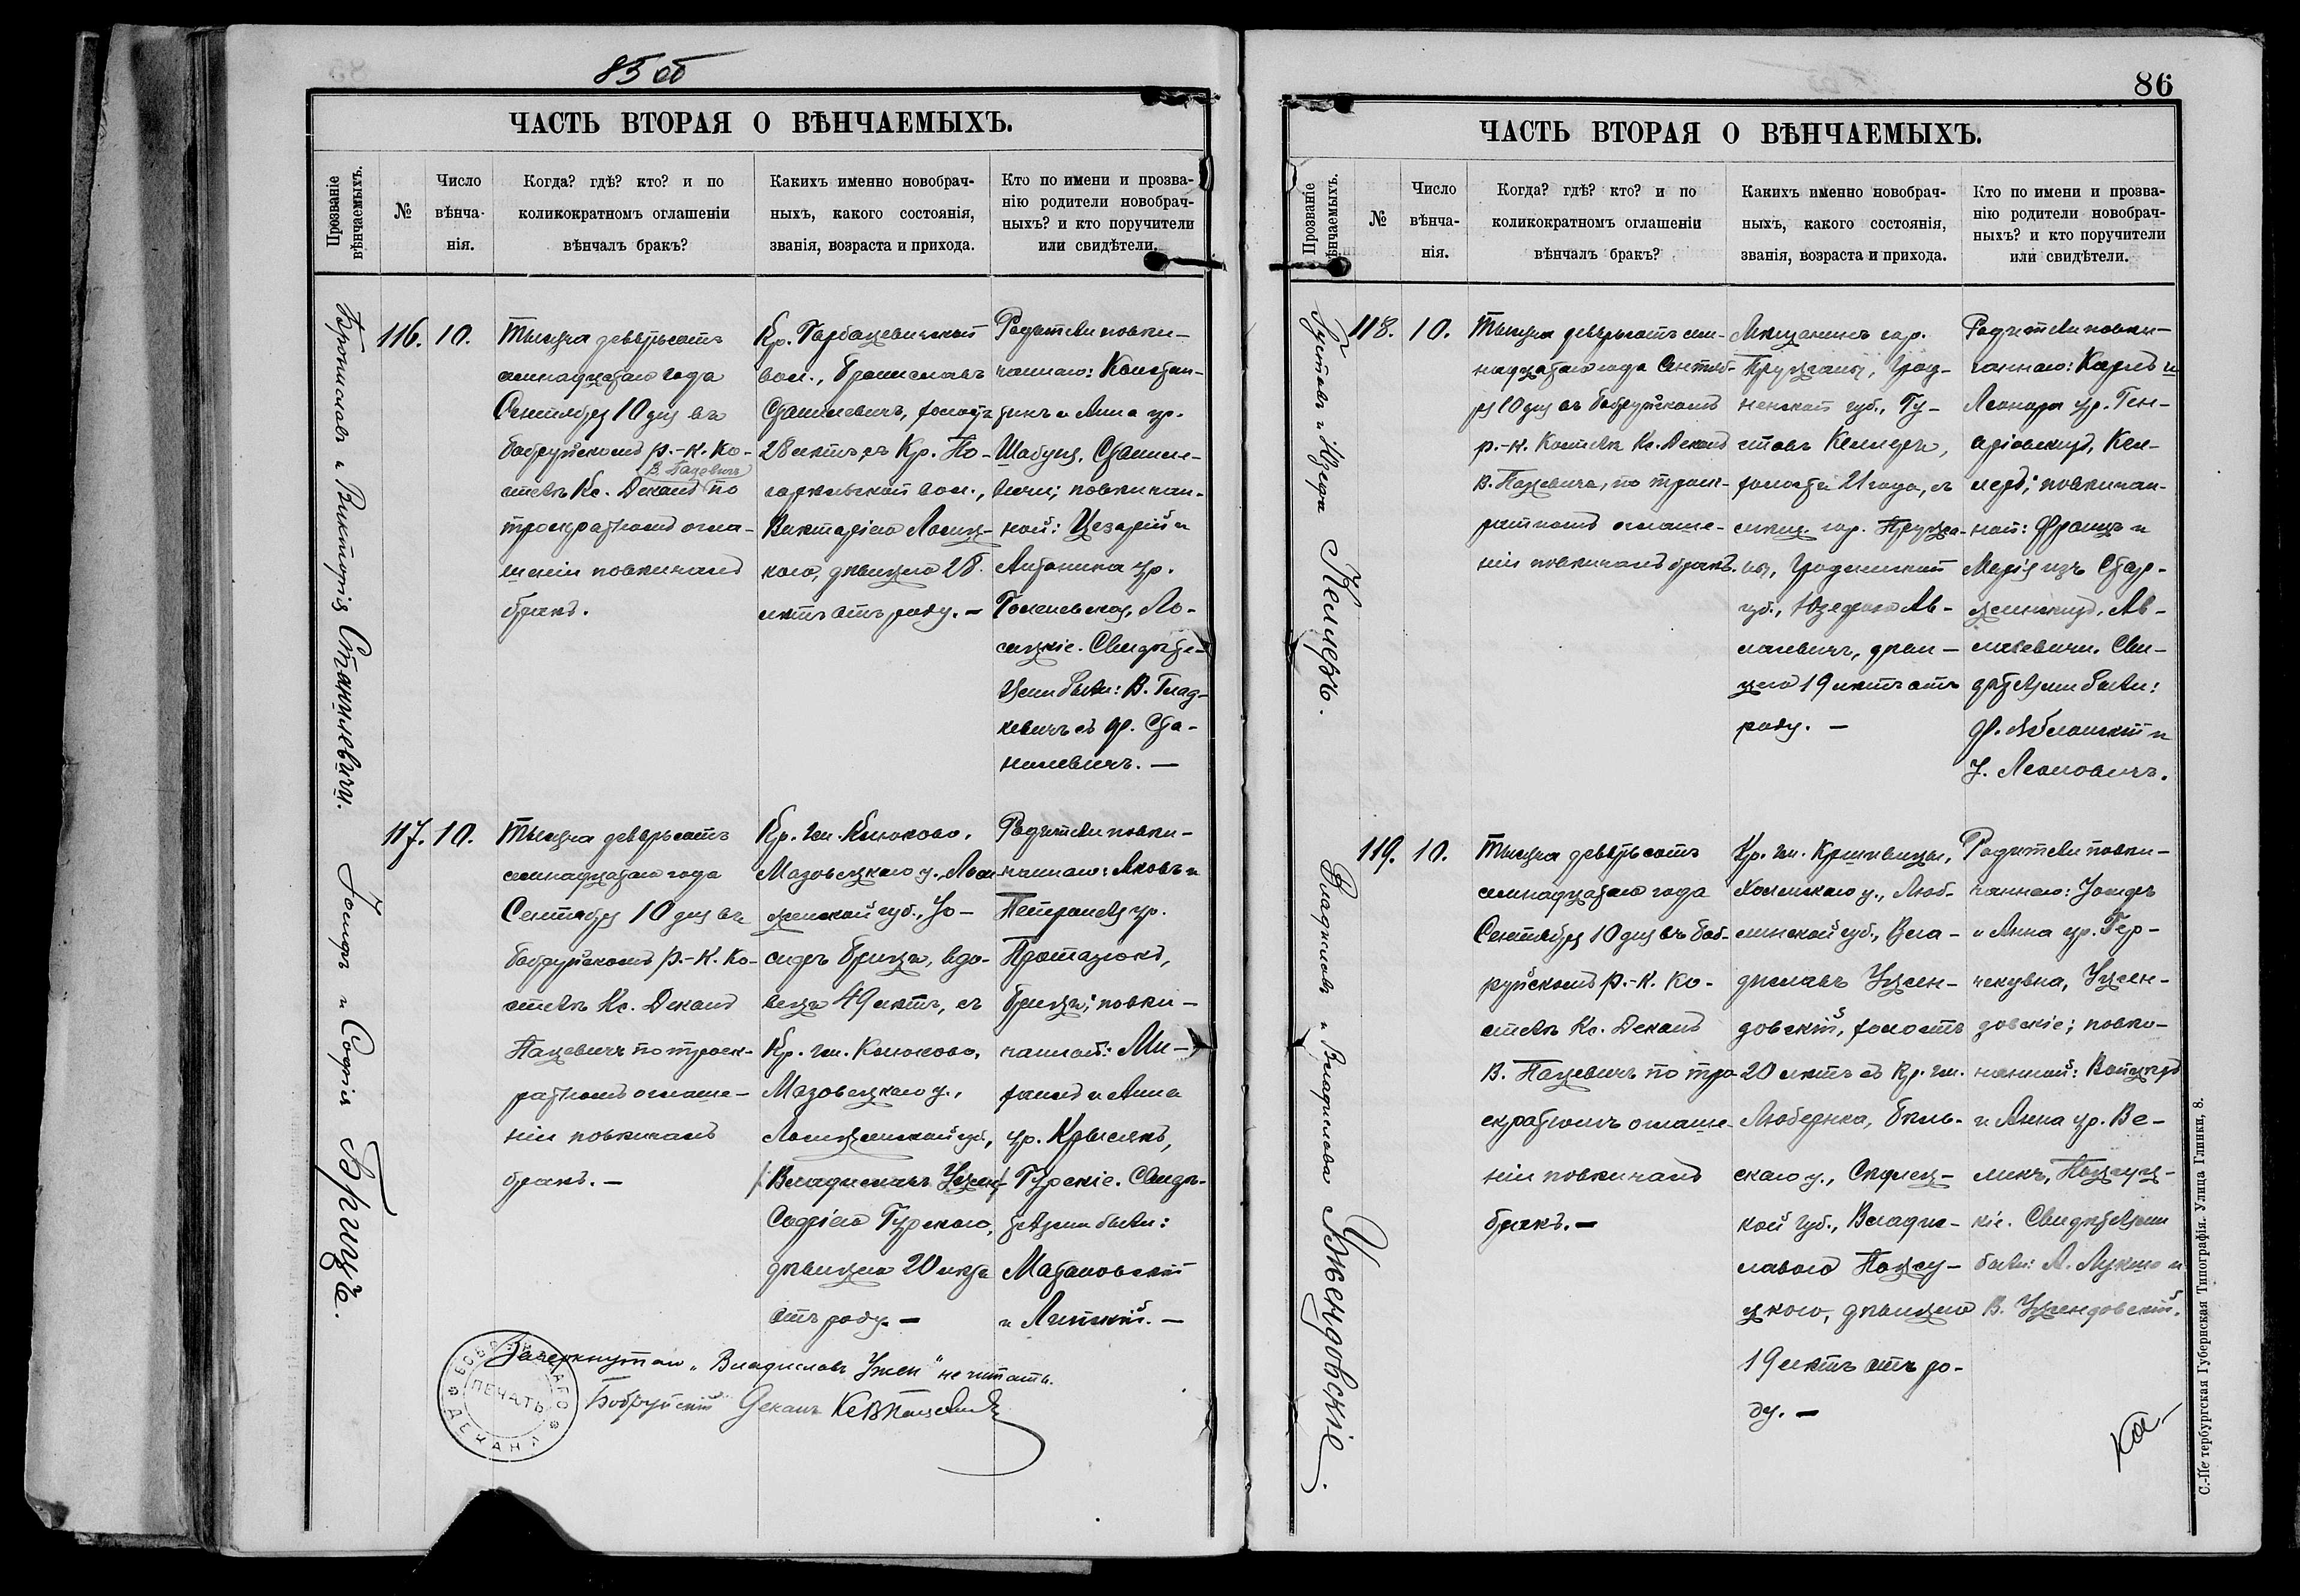 85 об
ЧАСТЬ ВТОРАЯ О ВѢНЧАЕМЫХЪ.
Прозваніе вѣнчаемыхъ.
№
Число вѣнча-
нія.
Когда? гдѣ? кто? и по
коликократномъ оглашеніи
вѣнчалъ бракъ?
Какихъ именно новобрач-
ныхъ, какого состоянія,
званія, возраста и прихода.
Кто по имени и прозва-
нію родители новобрач-
ныхъ? и кто поручители
или свидѣтели.
Брониславъ и Викторія Станилевичи.
116.
10.
Тысяча девятьсотъ
семнадцатаго года
Сентября 10 дня въ
Бобруйскомъ р.-к. Ко-
В. Пацевичъ
стелѣ Кс. Деканъ по
троекратномъ огла-
шеніи повѣнчалъ
бракъ.
Кр.
вол., Брониславъ
Станилевичъ, холостъ
28 лѣтъ съ Кр. По-
вол.,
Викторіею Лосиц-
кою, дѣвицею 28
лѣтъ отъ роду. —
Родители повѣн-
чаннаго: Констан-
тинъ и Анна ур.
Шабуня, Станиле-
вичи; повѣнчан-
ной: Цезарій и
Антонина ур.
Ло-
сицкіе. Свидѣте-
лями были: В. Глад-
кевичъ съ Ф. Ста-
нилевичъ. —
Іосифъ и Софія Бризъ.
117.
10.
Тысяча девятьсотъ
семнадцатаго года
Сентября 10 дня въ
Бобруйскомъ р.-к. Ко-
стелѣ Кс. Деканъ
Пацевичъ по троек-
ратномъ оглаше-
ніи повѣнчалъ
бракъ. —
Кр. гм.
Мазовецкаго у., Лом-
жинской губ., Іо-
сифъ Бризъ, вдо-
вецъ 49 лѣтъ, съ
Кр. гм.
Мазовецкаго у.,
Ломжинской губ.,
Владиславъ Ужен
Софіею Гурскою,
дѣвицею 20 лѣтъ
отъ роду. —
Родители повѣн-
чаннаго: Яковъ и
Петронеля ур.
Протазюкъ,
Бризъ; повѣн-
чанной: Ми-
хаилъ и Анна
ур. Крысякъ,
Гурскіе. Свидѣ-
телями были:
и Липскій. —
Зачеркнутое „Владиславъ Ужен" не читать.
Бобруйскій Деканъ Кс В Пацевичъ
БОБРУЙСКАГО ДЕКАНА
ПЕЧАТЬ
86
ЧАСТЬ ВТОРАЯ О ВѢНЧАЕМЫХЪ.
Прозваніе вѣнчаемыхъ.
№
Число вѣнча-
нія.
Когда? гдѣ? кто? и по
коликократномъ оглашеніи
вѣнчалъ бракъ?
Какихъ именно новобрач-
ныхъ, какого состоянія,
званія, возраста и прихода.
Кто по имени и прозва-
нію родители новобрач-
ныхъ? и кто поручители
или свидѣтели.
Густавъ и Юзефа Келлеръ.
118.
10.
Тысяча девятьсотъ сем-
надцатаго года Сентяб-
ря 10 дня въ Бобруйскомъ
р.-к. Костелѣ Кс. Деканъ
В. Пацевичъ, по троек-
ратномъ оглаше-
ніи повѣнчалъ бракъ.
Мѣщанинъ гор.
Пружаны, Грод-
ненской губ., Гу-
ставъ Келлеръ,
холостъ 21 года, съ
мѣщ. гор. Пружа-
ны, Гродненской
губ., Юзефою Ав-
дѣви-
цею 19 лѣтъ отъ
роду. —
Родители повѣн-
чаннаго: Карлъ и
Леонора ур.
Кел-
леръ; повѣнчан-
ной: Францъ и
Марія изъ
Сви-
дѣтелями были:
Ф. и
Леоновичъ.
Владиславъ и Владислава Ужендовскіе.
119.
10.
Тысяча девятьсотъ
семнадцатаго года
Сентября 10 дня въ Боб-
руйскомъ р.-к. Ко-
стелѣ Кс. Деканъ
В. Пацевичъ по тро-
екратномъ оглаше-
ніи повѣнчалъ
бракъ. —
Кр. гм.
Холмскаго у., Люб-
линской губ., Вла-
диславъ Ужен-
довскій, холостъ
20 лѣтъ съ Кр. гм.
Бѣль-
скаго у., Сѣдлец-
кой губ., Влади-
славою
дѣвицею
19 лѣтъ отъ ро-
ду. —
Родители повѣн-
чаннаго: Іосифъ
и Анна ур.
Ужен-
довскіе; повѣн-
чанной: Войцехъ
и Анна ур.
Свидѣтелями
были: А. и
В. Ужендовскій.
С.-Петербургская Губернская Типографія. Улица Глинки, 8.